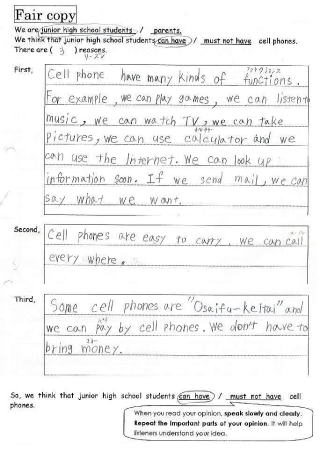 Fair copy
We are junior high school students / parents.
We think that junior high school students can have / must not have cell phones.
There are ( 3 ) reasons.
First,
Cell phone have many kinds of functions.
For example, we can play games, we can listen to
music, we can watch TV, we can take
pictures, we can use calculator and we
can use the Internet. We can look up
information soon. If we send mail, we can
say what we want.
Second,
Cell phones are easy to carry. We can call
every where.
Third,
Some cell phones are "Osaifu-Keitai" and
we can pay by cell phones. We don't have to
bring money.
So, we think that junior high school students can have / must not have cell
phones.
When you read your opinion, speak slowly and clearly.
Repeat the important parts of your opinion. It will help
listeners understand your idea.